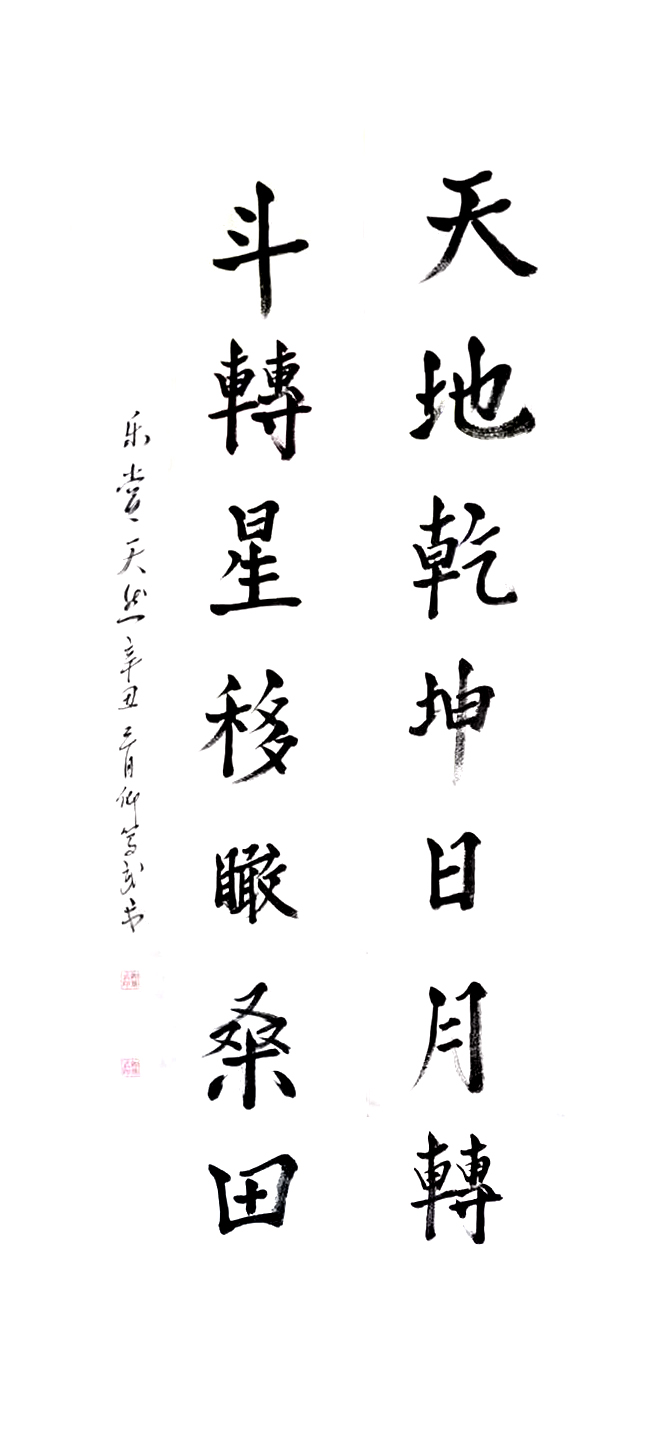 天地乾坤日月轉
斗轉星移瞰桑田
乐賞天然辛丑三月仰篤武书